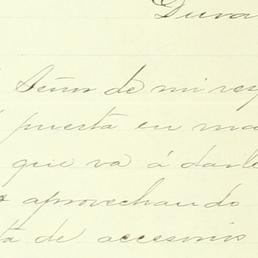 Dura
Señor de mi resp
puesta en ma
que va á darle
aprovechando
ta de accesorios